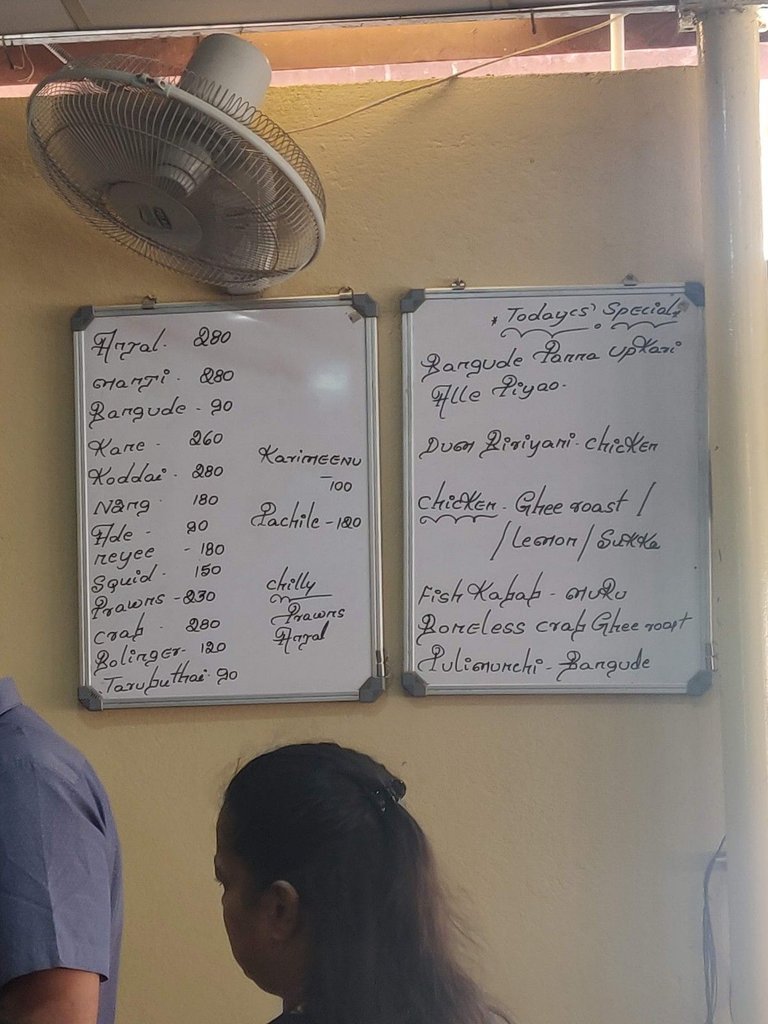 Anjal. 280
manji. 280
Bangude - 90
Kane - 260
Koddai. 280
Nang. 180
Ade - 90
neyee - 180
Squid. 150
Prawns - 230
Crab - 280
Bolinger - 120
Tarubuthai. 90
KariMEENU
- 100
Pachile - 120
chilly
Prawns
Anjal
* Todayes' Special *
Bangude Panna upkari
Alle Piyao.
Dum Biriyani. chicken
chicken. Ghee roast /
/ Lemon / Sukka
Fish Kabab - muru
Boneless crab Ghee roast
Pulimunchi - Bangude